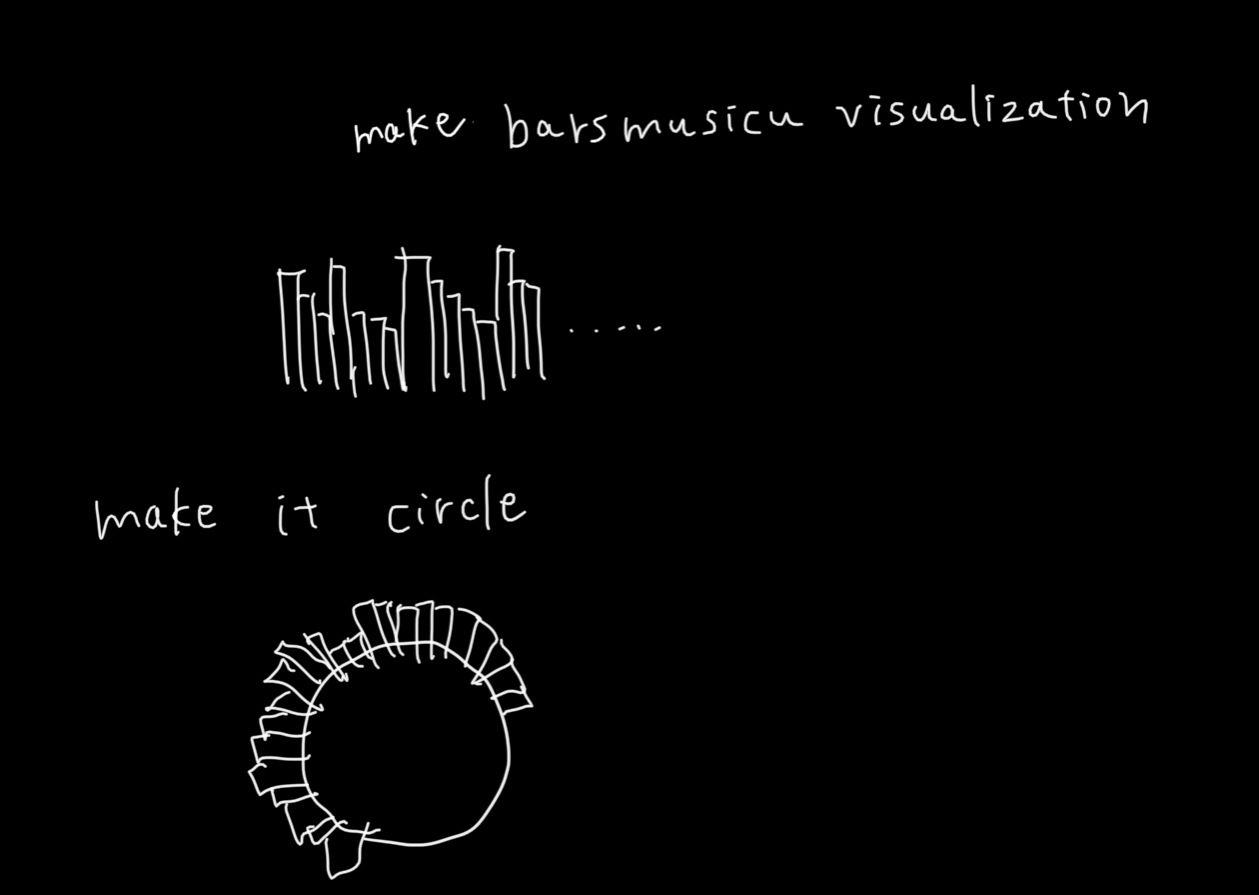 make barsmusicu visualization
make it circle